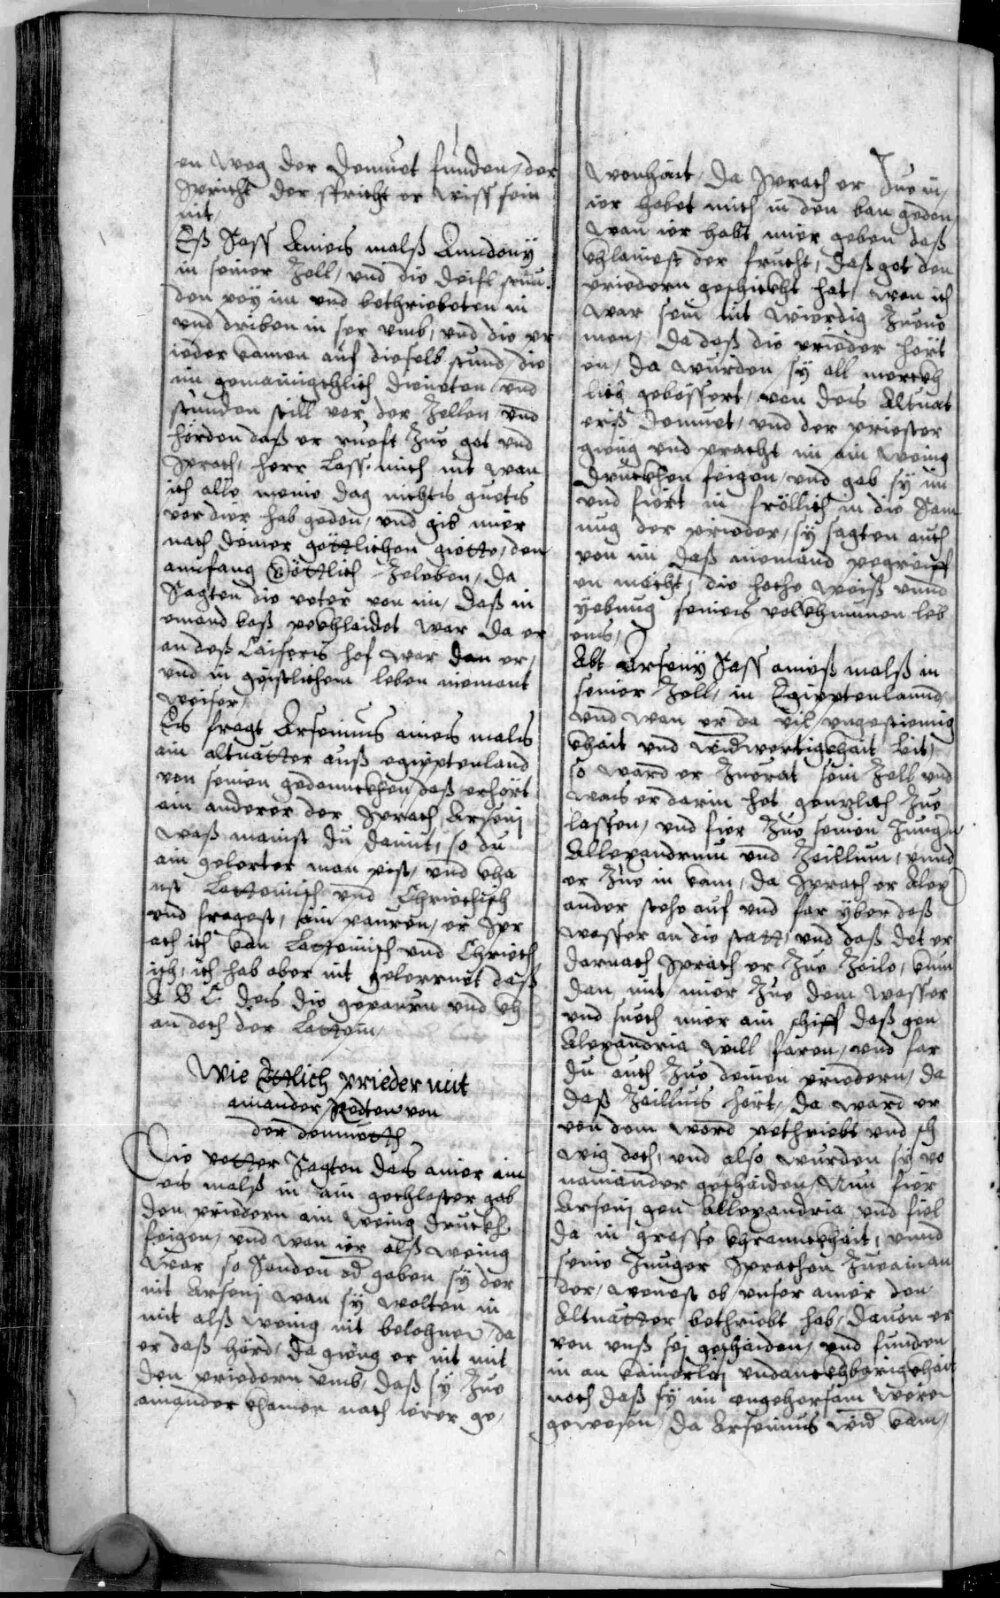 en weg der demuet funden, der
spricht der spricht er wiss sein
nit,
Eß sass aineis malß Annidony
in seiner Zell, und die deifl stuu
den pey im und bethriebeten in
und driben in ser umb, und die pr
ieder kamen auf dieselb stund, die
im gemainighlich dieneten, und
stunden still vor der Zellen und
hörden daß er rueft Zue got und
sprach, herr lass mich nit wan
ich alle meine dag nichts guetis
vor dier hab geden, und gib mier
nach deiner göttlichen giette, den
anufang Döttlich Zeleben, da
Sagten die veter von im, daß in
emand baß pekhleidet war da er
an deß Kaisers hof war dan er,
und in geistlichem leben niemant
weiser,
Es fragt Arsenius aineis maleis
ain altuatter auß egiptenland
von seinen gedennckhen daß erhört
ain anderer der sprach Arseni
waß mainst du damit, so du
ain gelerter man pist, und kha
nst Lateinisch und Chriechisch
und fragest, ain pauren, er spr
ach ich kan Lateinisch und Chriech
isch, ich hab aber nit gelerrnet daß
A B C deß die gepaurn und kh
an doch der Lattein,
Wie Ettlich prieder mit
ainander Redten von
der demuetth
Die vetter Sagten das ainer ain
eis malß in ain gechlester gab
den priedern ain wenig druckh
feigen, und wan ier alß wenig
war so Sanden od gaben sy der
nit Arseni wan sy wolten in
mit alß wenig nit belohnen da
er daß hörd, da gieng er nit mit
den priedern umb, daß sy Zue
ainander khamen nach irer ge,
wonhait, da sprach er Zue in,
ier habet mich in den ban geden,
wan ier habt mier geben daß
khlainest der frucht, daß got den
priedern geschickht hat, wen ich
war sein nit wierdig Zuene
men, da daß die prieder hört
en, da wurden sy all merckh
lich gebessert, von des Altuat
eriß demuet, und der priester
gieng und pracht im ain wenig
druckhen feigen, und gab sy im
und fiert in frölich in die Sam
nug der prieder, sy sagten auch
von im daß niemand pegreiff
en mecht, die hoche weiß unnd
yebnug seineis volkhumnen leb
enis,
Abt Arseny Sass aineß malß in
seiner Zell, in Egipptenlannd,
und wan er da vil ungestiemig
khait und widwertigkhait leit,
so ward er Zuerat sein Zell und
wais er darin het genzlich Zue
lassen, und fier Zue seinen Jungern
Allexandrum und Zoillum, unnd
er Zue in kam, da sprach er Alex
ander stehe auf und far yber daß
wasser an die statt, und daß det er
darnach sprach er Zue Zoilo, kum
dan mit mier Zue dem wasser
und suech mier ain schiff daß gen
Alexandria will faren, und far
du auch Zue deinen priedern, da
daß Zoilluis hört, da ward er
von dem word pethriebt und sch
wig doch, und also wurden sy vo
nainander geschaiden, Nun fier
Arseni gen Allexandria und fiel
da in grosse khrannckhait, unnd
seine Junger sprachen Zueainan
der, wenest ob unser ainer den
Altuatter bethriebt hab, dauon er
von unß sei geschaiden, und funden
in an kainerlei undanckhbarigkhait
noch daß sy im ungehorsam weren
gewesen, da Arsenius wid kam,